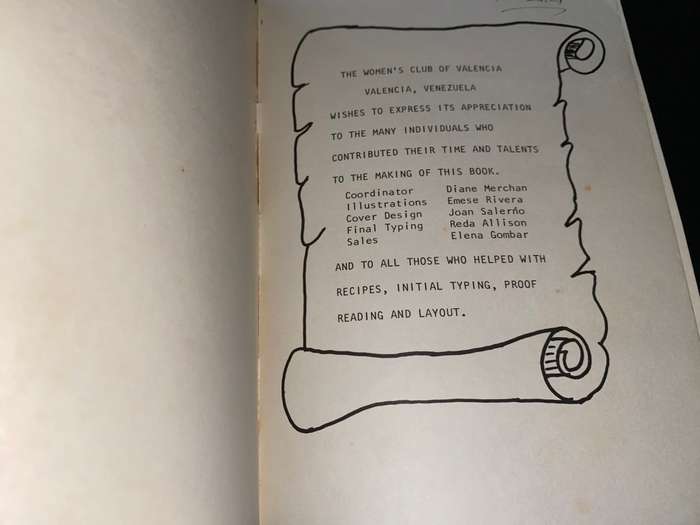 THE WOMEN'S CLUB OF VALENCIA
VALENCIA, VENEZUELA
WISHES TO EXPRESS ITS APPRECIATION
TO THE MANY INDIVIDUALS WHO
CONTRIBUTED THEIR TIME AND TALENTS
TO THE MAKING OF THIS BOOK.
Coordinator Diane Merchan
Illustrations Emese Rivera
Cover Design Joan Salerño
Final Typing Reda Allison
Sales Elena Gombar
AND TO ALL THOSE WHO HELPED WITH
RECIPES, INITIAL TYPING, PROOF
READING AND LAYOUT.